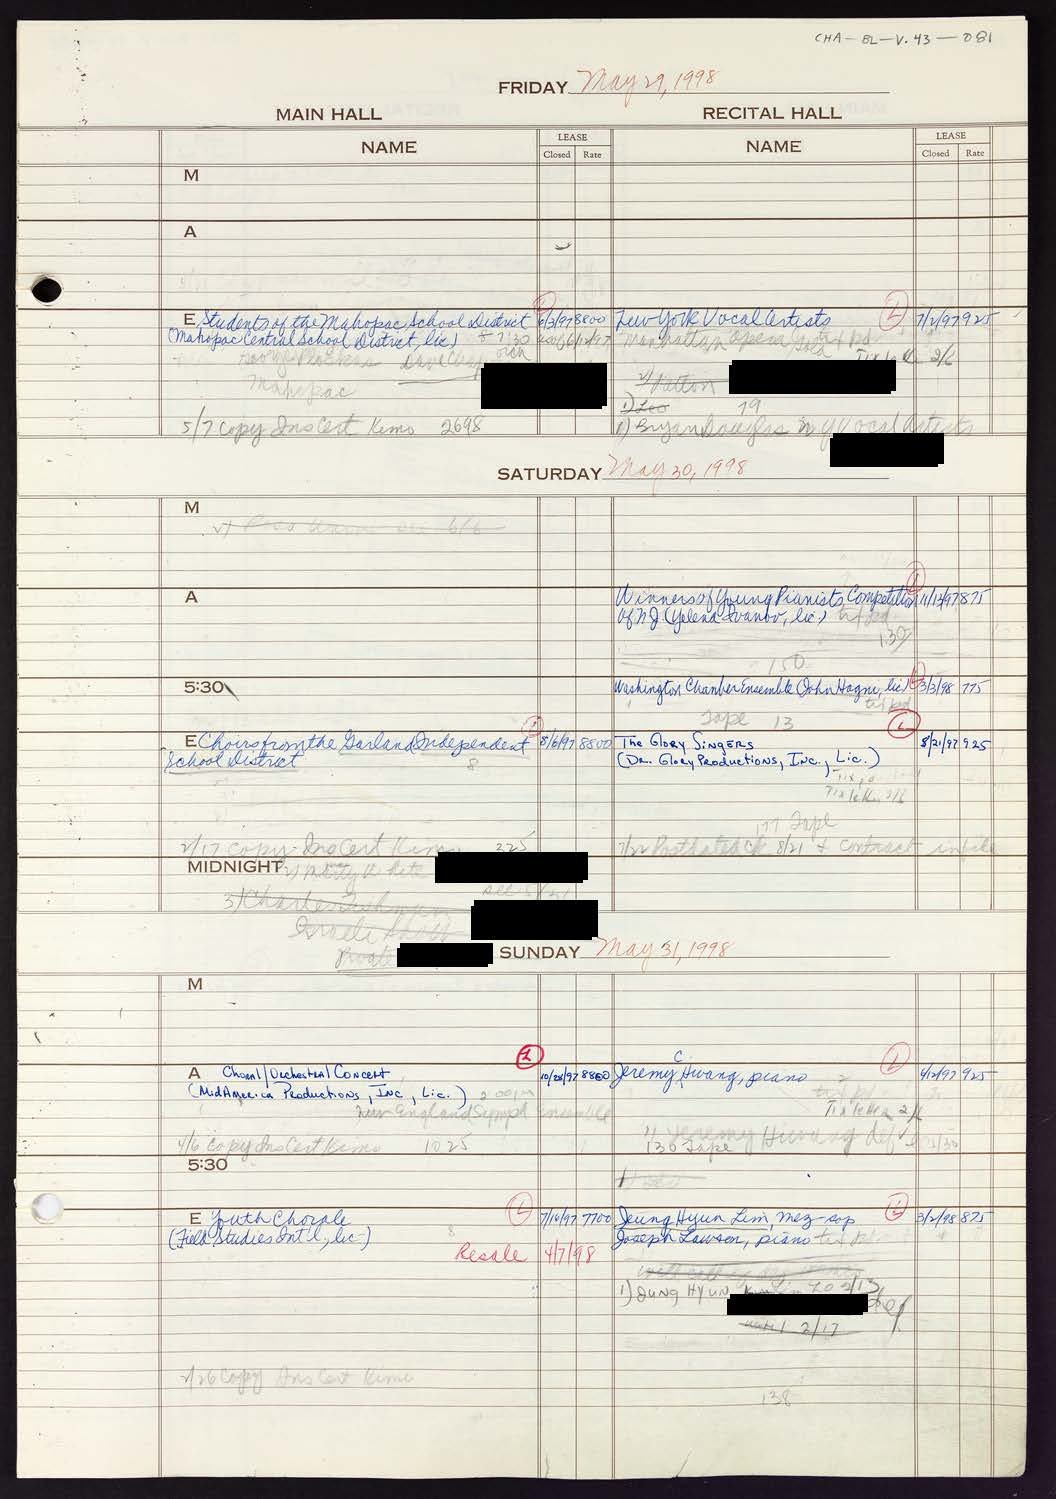 CHA-BL-V.43-081
FRIDAY May 29, 1998
MAIN HALL
RECITAL HALL
NAME
LEASE
Closed Rate
NAME
LEASE
Closed Rate
M
A
E Students of the Mahopac School District 6/3/97 8800
(Mahopac Central School District, lic) 7/30
Mahopac
5/7 Copy Ins Cert Kimo 2698
New York Vocal Artists L 7/2/97 925
Manhattan Opera
Tix letter 2/6
2) Patton
1) Leo 79
1) Bryan Douglas NY Vocal Artists
SATURDAY May 30, 1998
M
A
Winners of Young Pianists Competition 11/13/97 875
of NJ (Yelena Ivanov, lic) txt pd
130
150
5:30
Washington Chamber Ensemble (John Hagne, lic) 3/3/98 775
txt pd
Tape 13
E Choirs from the Garland Independent 8/6/97 8800
School District
8
2/17 Copy Ins Cert Kimo 325
The Glory Singers L 8/21/97 925
(Dr. Glory Productions, Inc., Lic.)
Tix letter 2/6
177 Tape
7/22 Postdated ck 8/21 + contract in file
MIDNIGHT
3) Charles
Private
SUNDAY May 31, 1998
M
A Choral/Orchestral Concert L 10/28/97 8800
(MidAmerica Productions, Inc., Lic.) 2:00pm
New England Symph ensemble
4/6 Copy Ins Cert Kimo 1025
Jeremy C. Hwang, piano L 4/2/97 925
Tix letter 2/6
1) Jeremy Hwang def
130 Tape
5:30
E Youth Chorale L 7/10/97 7700
(Field Studies Int'l, lic) 8
Resale 4/7/98
2/26 Copy Ins Cert Kimo
Jeung Hyun Lim, mez-sop L 3/2/98 875
Joseph Lawson, piano txt pd
1) Jung Hyun Lim to 2/13
2/17
138